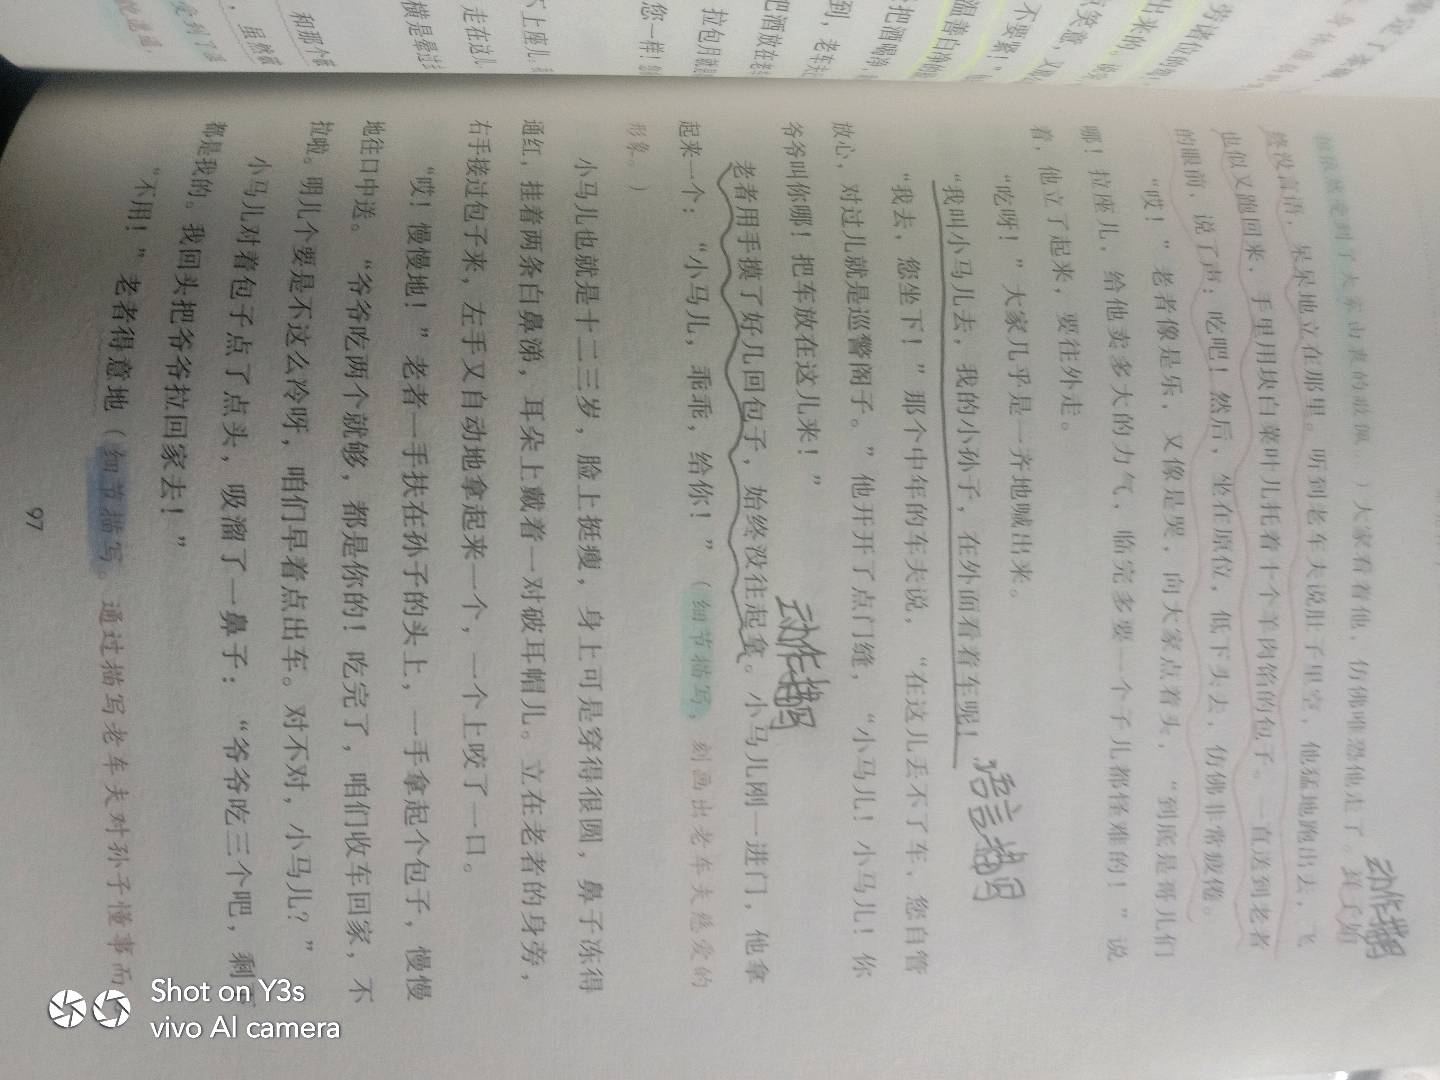 大家看着他，仿佛唯恐他走了。其子始
终没言语，呆呆地立在那里。听到老车夫说肚子里空，他猛地跑出去，飞
也似又跑回来，手里用块白菜叶儿托着十个羊肉馅的包子。一直送到老者
的眼前，说了声：吃吧！然后，坐在原位，低下头去，仿佛非常疲倦。
“哎！”老者像是乐，又像是哭，向大家点着头，“到底是哥儿们
哪！拉座儿，给他卖多大的力气，临完多要一个子儿都怪难的！”说
着，他立了起来，要往外走。
“吃呀！”大家几乎是一齐地喊出来。
“我叫小马儿去，我的小孙子，在外面看着车呢！
“我去，您坐下！”那个中年的车夫说，“在这儿丢不了车，您自管
放心，对过儿就是巡警阁子。”他开开了点门缝，“小马儿！小马儿！你
爷爷叫你哪！把车放在这儿来！”
老者用手摸了好几回包子，始终没往起拿。小马儿刚一进门，他拿
起来一个：“小马儿，乖乖，给你！”（细节描写，刻画出老车夫慈爱的
形象。）
小马儿也就是十二三岁，脸上挺瘦，身上可是穿得很圆，鼻子冻得
通红，挂着两条白鼻涕，耳朵上戴着一对破耳帽儿。立在老者的身旁，
右手接过包子来，左手又自动地拿起来一个，一个上咬了一口。
“哎！慢慢地！”老者一手扶在孙子的头上，一手拿起个包子，慢慢
地往口中送。“爷爷吃两个就够，都是你的！吃完了，咱们收车回家，不
拉啦。明儿个要是不这么冷呀，咱们早着点出车。对不对，小马儿？”
小马儿对着包子点了点头，吸溜了一鼻子：“爷爷吃三个吧，剩下
都是我的。我回头把爷爷拉回家去！”
“不用！”老者得意地（细节描写。通过描写老车夫对孙子懂事而
97
动作描写
语言描写
动作描写
Shot on Y3s
vivo AI camera